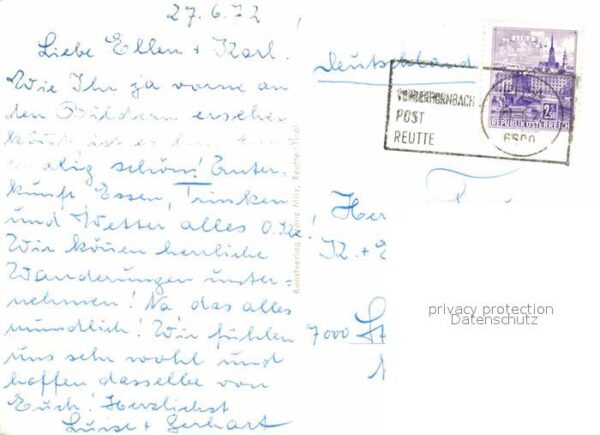 27.6.72
Liebe Ellen + Karl.
Wie Ihr ja vorne an
den Bildern ersehen
könnt, ist es hier
malig schön! Unter-
kunft, Essen, Trinken
und Wetter alles O.K.
Wir können herrliche
Wanderungen unter-
nehmen! Na das alles
mündlich! Wir fühlen
uns sehr wohl und
hoffen dasselbe von
Euch! Herzlichst
Luise + Gerhart
Kunstverlag Franz Milz, Reutte-Tirol
Deutschland
VORDERHORNBACH
POST
REUTTE
6600
LINZ
2.50
REPUBLIK ÖSTERREICH
K. +
7000
privacy protection
Datenschutz